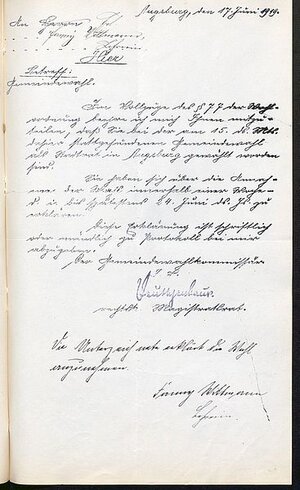 Augsburg, den 17 Juni 1919.
An
Fanny Wittmann,
Lehrerin
Hier
Betreff:
Gemeindewahl.
Im Vollzuge des § 77 der Wahl-
ordnung beehre ich mich Ihnen mitzu-
teilen, daß Sie bei der am 15. ds. Mts.
dahier stattgefundenen Gemeindewahl
als Stadtrat in Augsburg gewählt worden
sind.
Sie haben sich über die Annah-
me der Wahl innerhalb einer Woche
d. i. bis spätestens 24 Juni ds. Js. zu
erklären.
Diese Erklärung ist schriftlich
oder mündlich zu Protokoll bei mir
abzugeben.
Der Gemeindewahlkommissär
rechtsk. Magistratsrat.
Die Unterzeichnete erklärt die Wahl
anzunehmen.
Fanny Wittmann
Lehrerin.